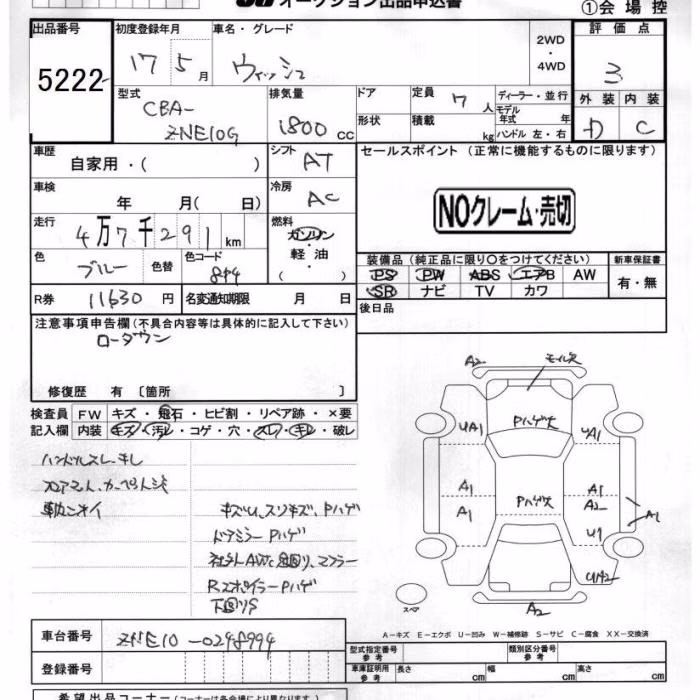 オークション出品申込書
①会場控
出品番号 初度登録年月 車名・グレード 評価点
5222 17年5月 ウィッシュ 2WD・4WD 3
型式 排気量 ドア 定員 7人 ディーラー・並行 外装 内装
CBA-ZNE10G 1800 cc 形状 積載 kg モデル年式 年 ハンドル 左・右 D C
車歴 シフト セールスポイント (正常に機能するものに限ります)
自家用・( ) AT
車検 冷房
年 月( 日) AC
NOクレーム・売切
走行 燃料
4万7千291km ガソリン・軽油・( )
色 色替 色コード 装備品(純正品に限り○をつけてください) 新車保証書
ブルー 8P4 PS PW ABS エアB AW 有・無
SR ナビ TV カワ
R券 11630円 名変通知期限 月 日 後日品
注意事項申告欄(不具合内容等は具体的に記入して下さい)
ローダウン
修復歴 有 〔箇所 〕
検査員 FW キズ・飛石・ヒビ割・リペア跡・×要
記入欄 内装 キズ・汚レ・コゲ・穴・スレ・キレ・破レ
ハンドルスレ、キレ
フロアマット、カーペット
車内ニオイ キズU、スリキズ、Pハゲ
ドアミラーPハゲ
社外AWと足回り、マフラー
RスポイラーPハゲ
下回りS
A2
Pハゲ大
UA1
A1 A1
A1 Pハゲ大 A2
A1
U1
UA2
スペア
A2
A-キズ E-エクボ U-凹み W-補修跡 S-サビ C-腐食 XX-交換済
車台番号 ZNE10-0248994
型式指定番号 参考 類別区分番号 参考
登録番号
車庫証明用 参考 長さ cm 幅 cm 高さ cm
希望出品コーナー(コーナーは各会場により異なります)